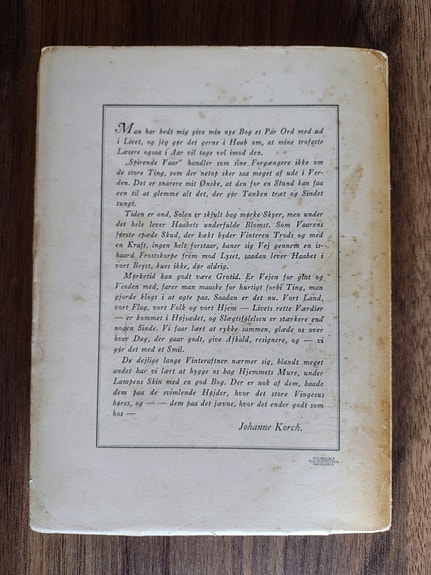 Man har bedt mig give min nye Bog et Par Ord med ud
i Livet, og jeg gør det gerne i Haab om, at mine trofaste
Læsere ogsaa i Aar vil tage vel imod den.
„Spirende Vaar" handler som sine Forgængere ikke om
de store Ting, som der netop sker saa meget af ude i Ver-
den. Det er snarere mit Ønske, at den for en Stund kan faa
een til at glemme alt det, der gør Tanken træt og Sindet
tungt.
Tiden er ond, Solen er skjult bag mørke Skyer, men under
det hele lever Haabets underfulde Blomst. Som Vaarens
første spæde Skud, der kækt byder Vinteren Trods og med
en Kraft, ingen helt forstaar, baner sig Vej gennem en is-
haard Frostskorpe frem mod Lyset, saadan lever Haabet i
vort Bryst, kues ikke, dør aldrig.
Mørketid kan godt være Grotid. Er Vejen for glat og
Vinden med, farer man maaske for hurtigt forbi Ting, man
gjorde klogt i at agte paa. Saadan er det nu. Vort Land,
vort Flag, vort Folk og vort Hjem — Livets rette Værdier
— er kommet i Højsædet, og Slægtsfølelsen er stærkere end
nogen Sinde. Vi faar lært at rykke sammen, glæde os over
hver Dag, der gaar godt, give Afkald, resignere, og — vi
gør det med et Smil.
De dejlige lange Vinteraftner nærmer sig, blandt meget
andet har vi lært at hygge os bag Hjemmets Mure, under
Lampens Skin med en god Bog. Der er nok af dem, baade
dem paa de svimlende Højder, hvor det store Vingesus
høres, og — — dem paa det jævne, hvor det ender godt som
hos —
Johanne Korch.